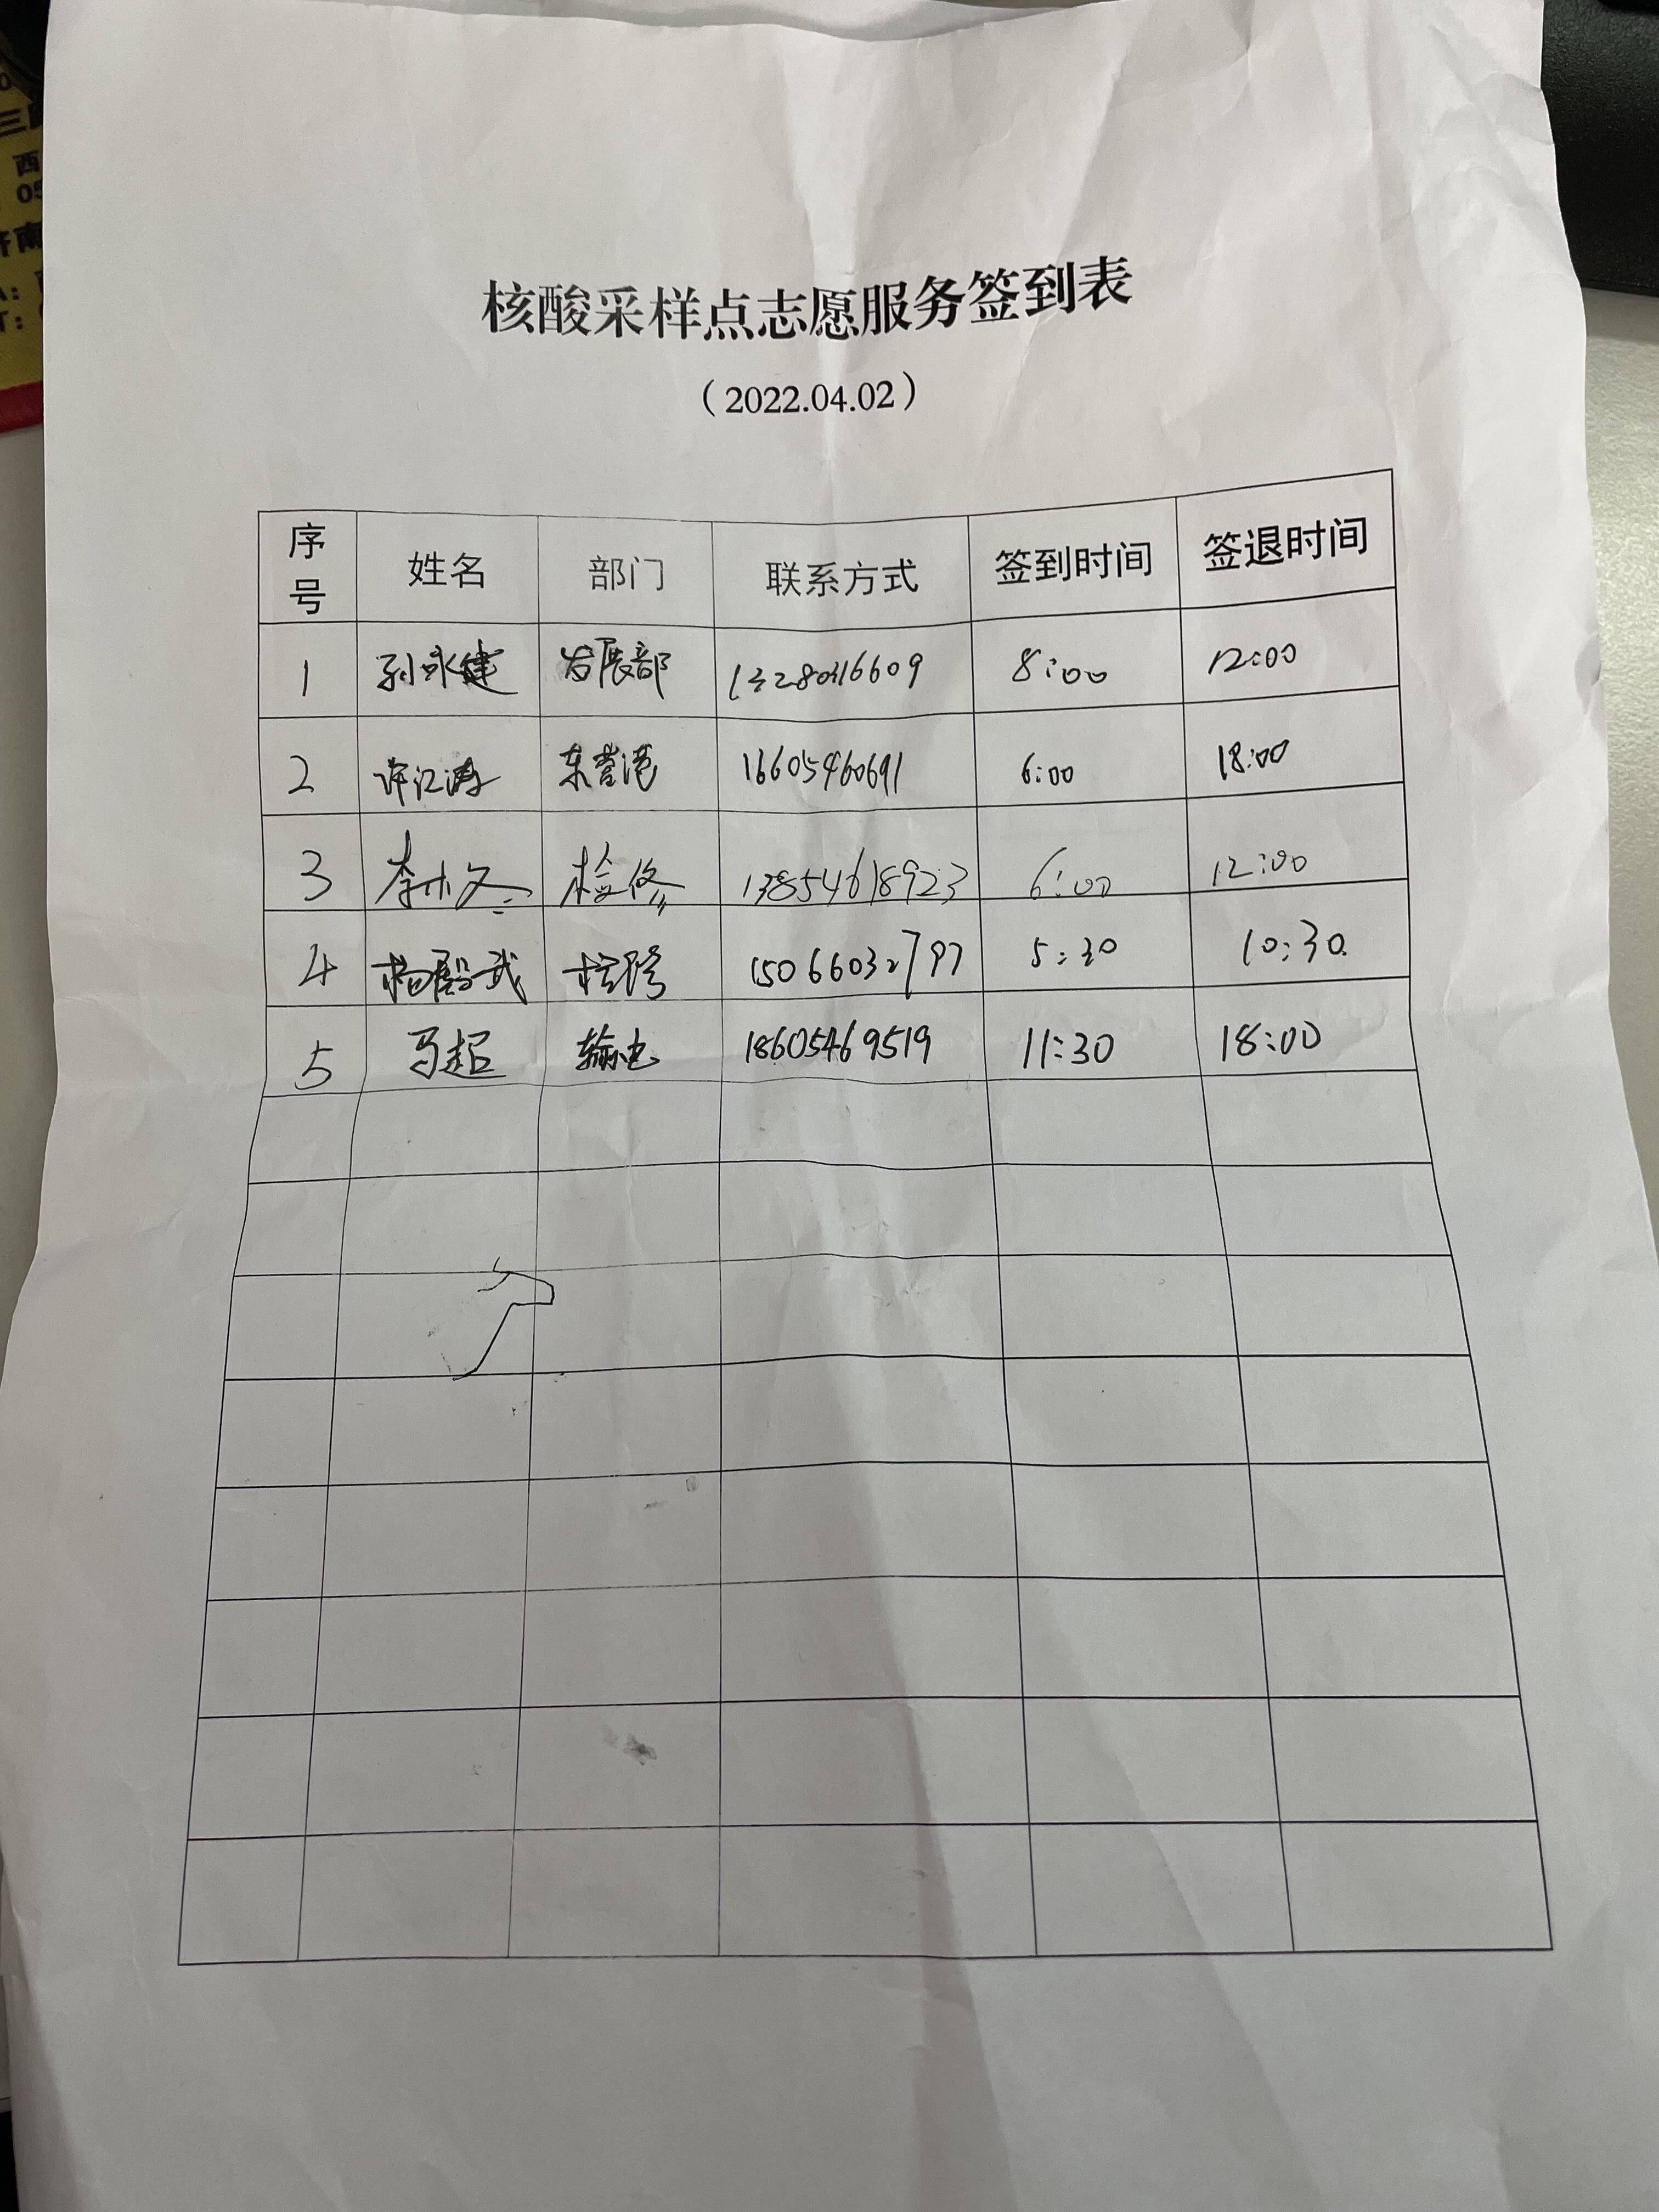 核酸采样点志愿服务签到表
（2022.04.02）
序号 姓名 部门 联系方式 签到时间 签退时间
1 孙永建 发展部 13280316609 8:00 12:00
2 许江涛 东营港 16605460691 6:00 18:00
3 李小文 检修 13854618923 6:00 12:00
4 杨殿武 检修 15066032797 5:30 10:30
5 马超 输电 18605469519 11:30 18:00